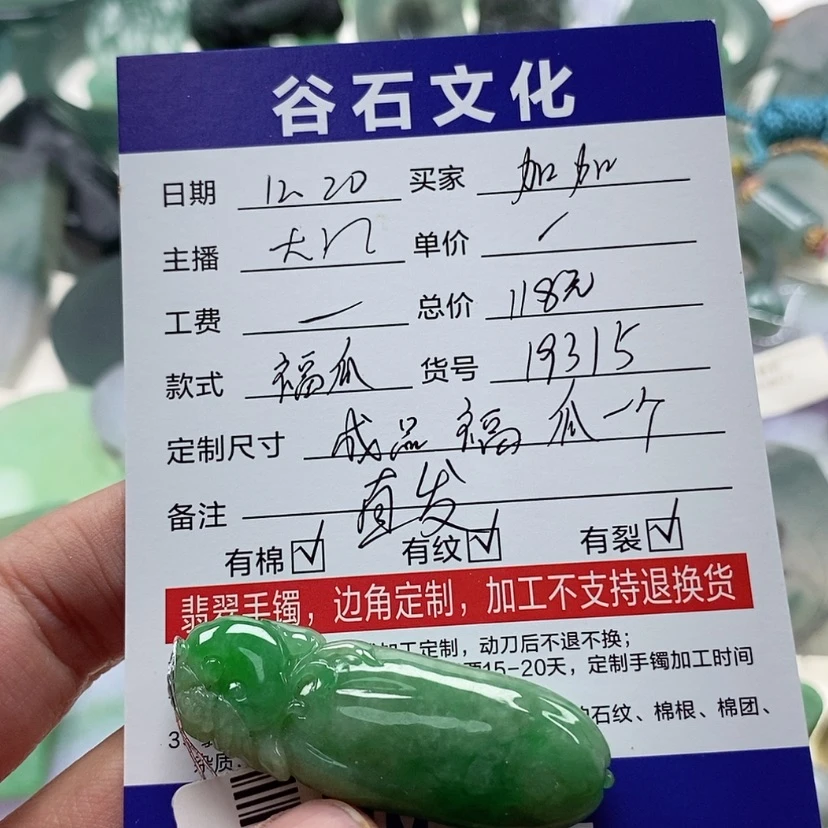 谷石文化
日期 12.20 买家 加加
主播 大门 单价 /
工费 一 总价 118元
款式 福瓜 货号 19315
定制尺寸 成品福瓜一个
备注 直发
有棉 ☑ 有纹 ☑ 有裂 ☑
翡翠手镯，边角定制，加工不支持退换货
加工定制，动刀后不退不换；
15-20天，定制手镯加工时间
石纹、棉根、棉团、
3
杂质